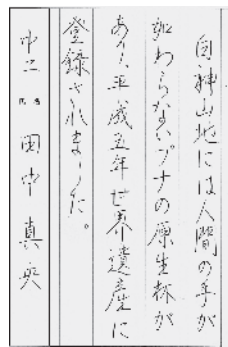 白神山地には人間の手が
加わらないブナの原生林が
あり、平成五年世界遺産に
登録されました。
中二 氏名 田中真央